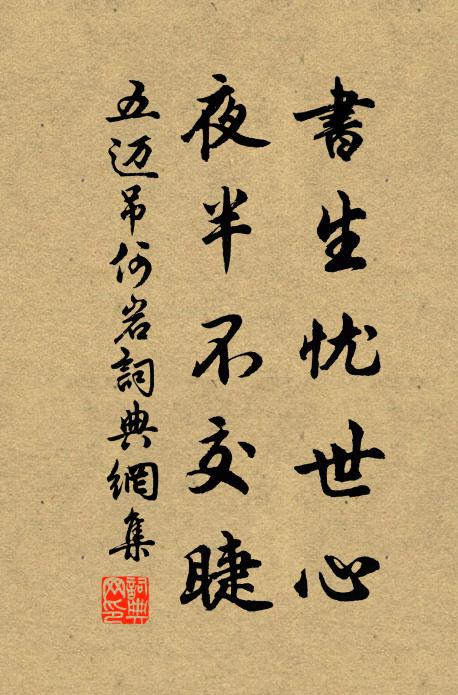 書生忧世心
夜半不交睫
五迈吊何岩詞典網集
詞典
网印